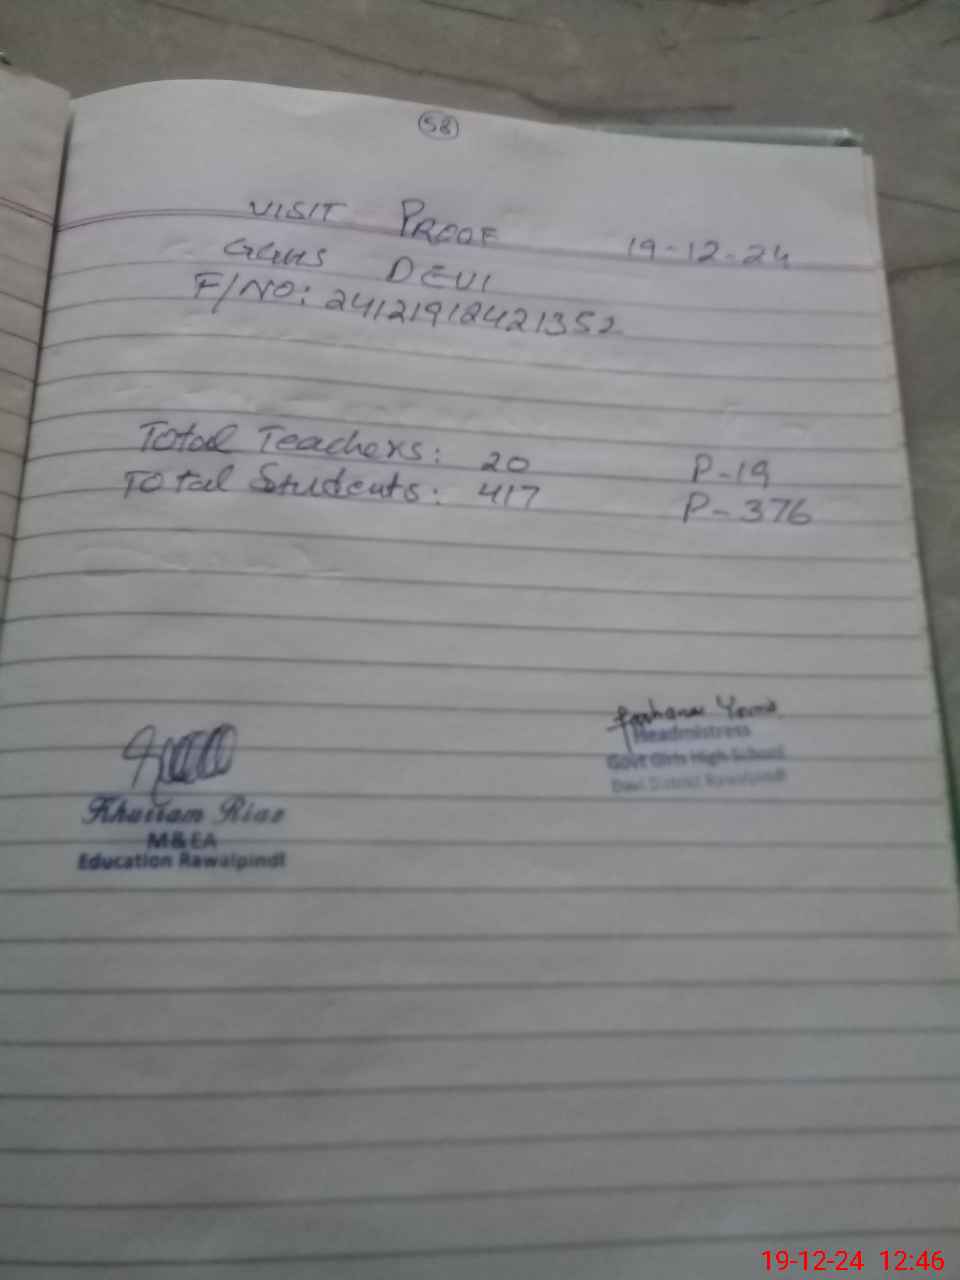 58
VISIT PROOF 19-12-24
GGHS DEVI
F/NO: 24121918421352
Total Teachers: 20 P-19
Total Students: 417 P-376
Headmistress
Govt Girls High School
Devi District Rawalpindi
Khurram Riaz
M&EA
Education Rawalpindi
19-12-24 12:46